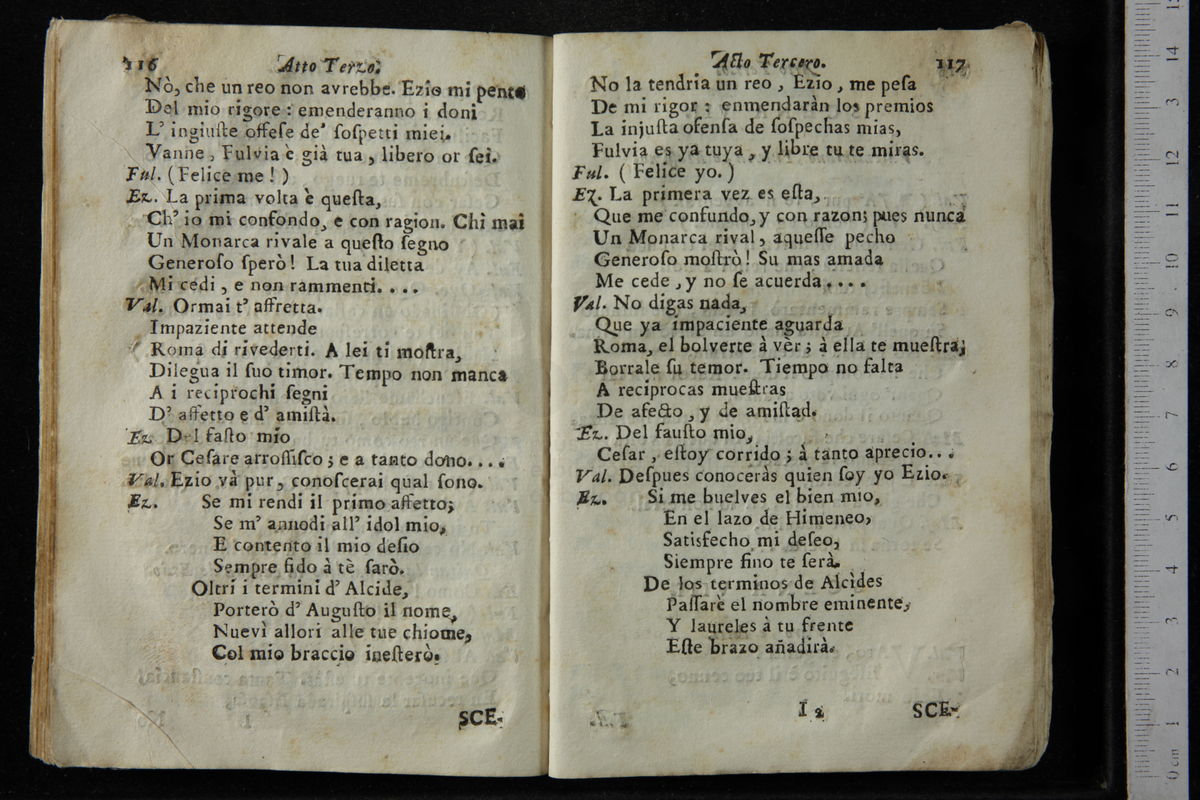 116 Atto Terzo.
Nò, che un reo non avrebbe. Ezio mi pento
Del mio rigore : emenderanno i doni
L' ingiuſte offeſe de' ſoſpetti miei.
Vanne, Fulvia è già tua, libero or ſei.
Ful. (Felice me!)
Ez. La prima volta è queſta,
Ch' io mi confondo, e con ragion. Chi mai
Un Monarca rivale a queſto ſegno
Generoſo ſperò! La tua diletta
Mi cedi, e non rammenti....
Val. Ormai t' affretta.
Impaziente attende
Roma di rivederti. A lei ti moſtra,
Dilegua il ſuo timor. Tempo non manca
A i reciprochi ſegni
D' affetto e d' amiſtà.
Ez. Del faſto mio
Or Ceſare arroſſiſco; e a tanto dono....
Val. Ezio và pur, conoſcerai qual ſono.
Ez. Se mi rendi il primo affetto;
Se m' annodi all' idol mio,
E contento il mio deſio
Sempre fido à tè ſarò.
Oltri i termini d' Alcide,
Porterò d' Auguſto il nome,
Nuevì allori alle tue chiome,
Col mio braccio ineſterò.
SCE-
Acto Tercero. 117
No la tendria un reo, Ezio, me peſa
De mi rigor : enmendaràn los premios
La injuſta ofenſa de ſoſpechas mias,
Fulvia es ya tuya, y libre tu te miras.
Ful. (Felice yo.)
Ez. La primera vez es eſta,
Que me confundo, y con razon; pues nunca
Un Monarca rival, aqueſſe pecho
Generoſo moſtrò! Su mas amada
Me cede, y no ſe acuerda....
Val. No digas nada,
Que ya impaciente aguarda
Roma, el bolverte à vèr; à ella te mueſtra;
Borrale ſu temor. Tiempo no falta
A reciprocas mueſtras
De afecto, y de amiſtad.
Ez. Del fauſto mio,
Ceſar, eſtoy corrido; à tanto aprecio...
Val. Deſpues conoceràs quien ſoy yo Ezio.
Ez. Si me buelves el bien mio,
En el lazo de Himeneo,
Satisfecho mi deſeo,
Siempre fino te ſerà.
De los terminos de Alcides
Paſſarè el nombre eminente,
Y laureles à tu frente
Eſte brazo añadirà.
I 2 SCE-